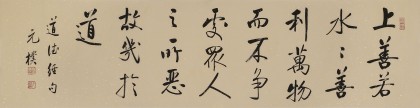 上善若
水〻善
利萬物
而不争
處眾人
之所惡
故幾於
道
道德經句
元樸